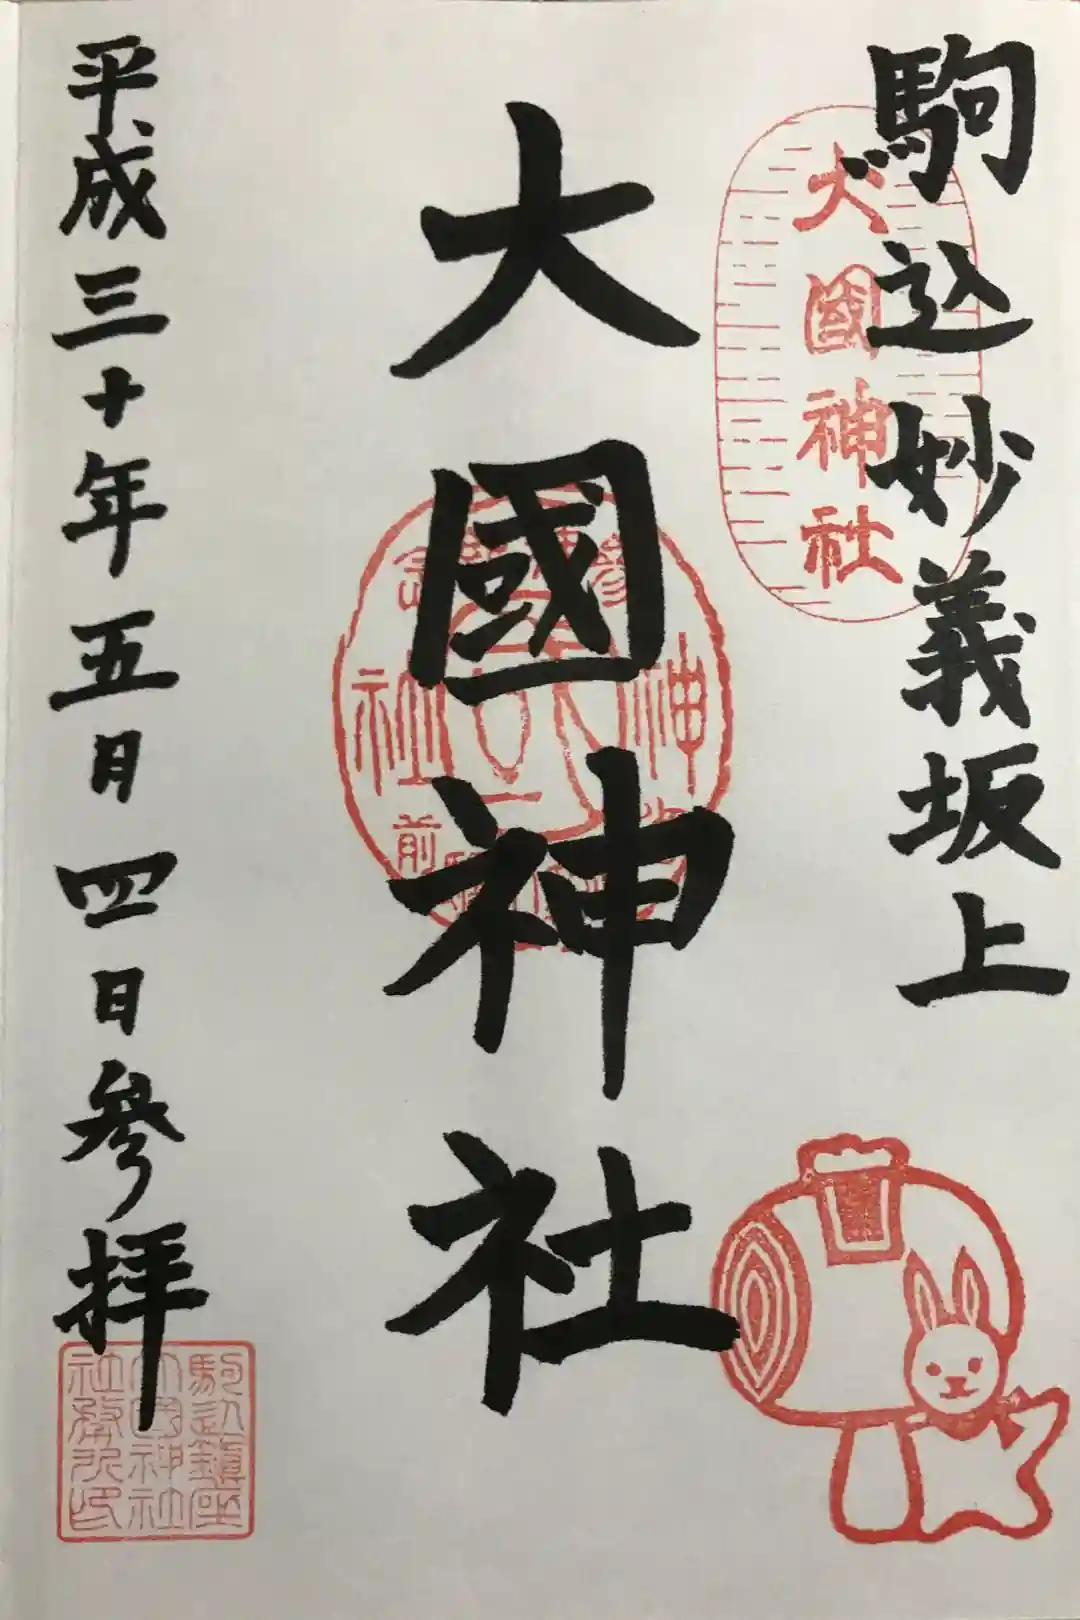 駒込妙義坂上
大國神社
大國神社
平成三十年五月四日参拝
神
社
前
駒込鎮座
大国神社
社務所印